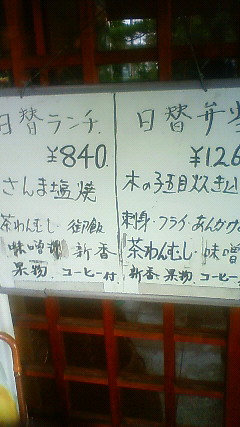 日替ランチ
¥840.
さんま塩焼
茶わんむし・御飯
味噌汁 新香
果物 コーヒー付
日替弁当
¥126
木の子五目炊き込
刺身・フライ・あんかけ
茶わんむし・味噌
新香 果物 コーヒー